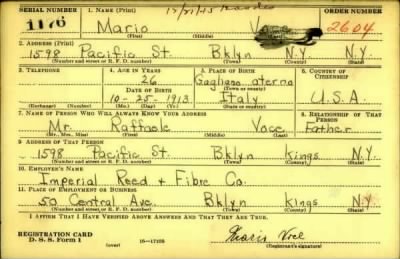 SERIAL NUMBER 1. NAME (Print) ORDER NUMBER
1176 Mario 2604
(First) (Middle) (Last)
2. ADDRESS (Print)
1598 Pacific St. Bklyn N.Y.
(Number and street or R. F. D. number) (Town) (County) (State)
3. TELEPHONE 4. AGE IN YEARS 5. PLACE OF BIRTH 6. COUNTRY OF CITIZENSHIP
26 Gagliano aterno
DATE OF BIRTH (Town or county)
10-25-1913 Italy U.S.A.
(Exchange) (Number) (Mo.) (Day) (Yr.) (State or country)
7. NAME OF PERSON WHO WILL ALWAYS KNOW YOUR ADDRESS 8. RELATIONSHIP OF THAT PERSON
Mr. Raffaele Voce Father
(Mr., Mrs., Miss) (First) (Middle) (Last)
9. ADDRESS OF THAT PERSON
1598 Pacific St. Bklyn Kings N.Y.
(Number and street or R. F. D. number) (Town) (County) (State)
10. EMPLOYER'S NAME
Imperial Reed + Fibre Co.
11. PLACE OF EMPLOYMENT OR BUSINESS
50 Central Ave. Bklyn Kings N.Y.
(Number and street or R. F. D. number) (Town) (County) (State)
I AFFIRM THAT I HAVE VERIFIED ABOVE ANSWERS AND THAT THEY ARE TRUE.
REGISTRATION CARD
D. S. S. Form 1 (over) 16—17105 Mario Voce
(Registrant's signature)